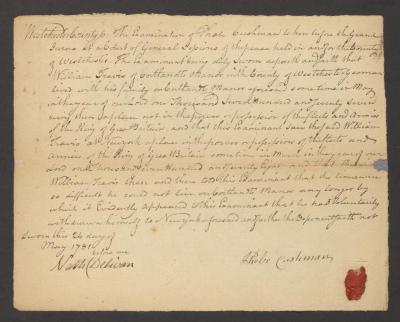 Westchester County ss. The Examination of Phebe Cushman taken before the Grand
Jurors at a Court of General Sessions of the peace held in and for the County
of Westchester. The Examinant being duly Sworn deposeth and saith that
William Travis of Cortlandts Manor in the County of Westchester yeoman
lived with his family on Cortlandts Manor aforesaid sometime in May
in the year of our Lord one Thousand Seven Hundred and Seventy Seven
being then a place not in the power or possession of the fleets and Armies
of the King of Great Britain and that this Examinant saw the said William
Travis at Newyork a place in the power or possession of the fleets and
Armies of the King of Great Britain sometime in in the year of our
Lord one Thousand Seven Hundred and Seventy Eight and that the said
William Travis then and there told this Examinant that the times were
so difficult he could not live on Cortlandts Manor any longer by
which it Evidently appeared to this Examinant that he had Voluntarily
withdrawn himself to Newyork aforesaid and further the Deponent saith not
Sworn this 24 day of
May 1781 before me
Nathl Delivan
Phebe Cushman